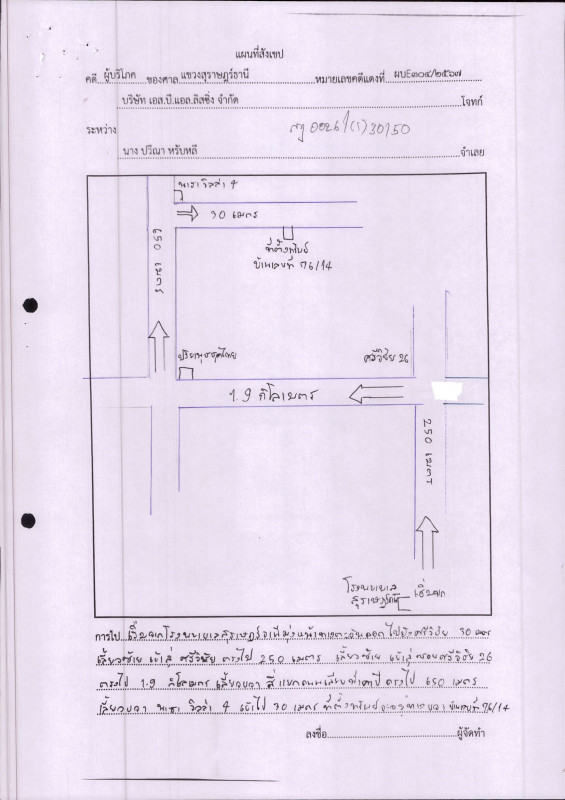 แผนที่สังเขป
คดี ผู้บริโภค ของศาล แขวงสุราษฎร์ธานี หมายเลขคดีแดงที่ ผบE๓๐๔/๒๕๖๗
บริษัท เอส.บี.แอล.ลิสซิ่ง จำกัด โจทก์
ระหว่าง
นาง ปวีณา หรับหลี จำเลย
30 เมตร
ที่ตั้งทรัพย์
บ้านเลขที่ 76/14
650 เมตร
ศรีวิชัย 26
1.9 กิโลเมตร
250 เมตร
โรงพยาบาล
เริ่มจาก
การไป เริ่มจากโรงพยาบาลสุราษฎร์ธานีมุ่งหน้าทางตะวันออก ไปยังศรีวิชัย 30 เมตร
เลี้ยวซ้าย เข้าสู่ ศรีวิชัย ตรงไป 250 เมตร เลี้ยวซ้าย เข้าสู่ ซอยศรีวิชัย 26
ตรงไป 1.9 กิโลเมตร เลี้ยวขวา ตรงไป 650 เมตร
เลี้ยวขวา วิลล่า 4 เข้าไป 30 เมตร ที่ตั้งทรัพย์จะอยู่ทางขวา บ้านเลขที่ 76/14
ลงชื่อ ผู้จัดทำ